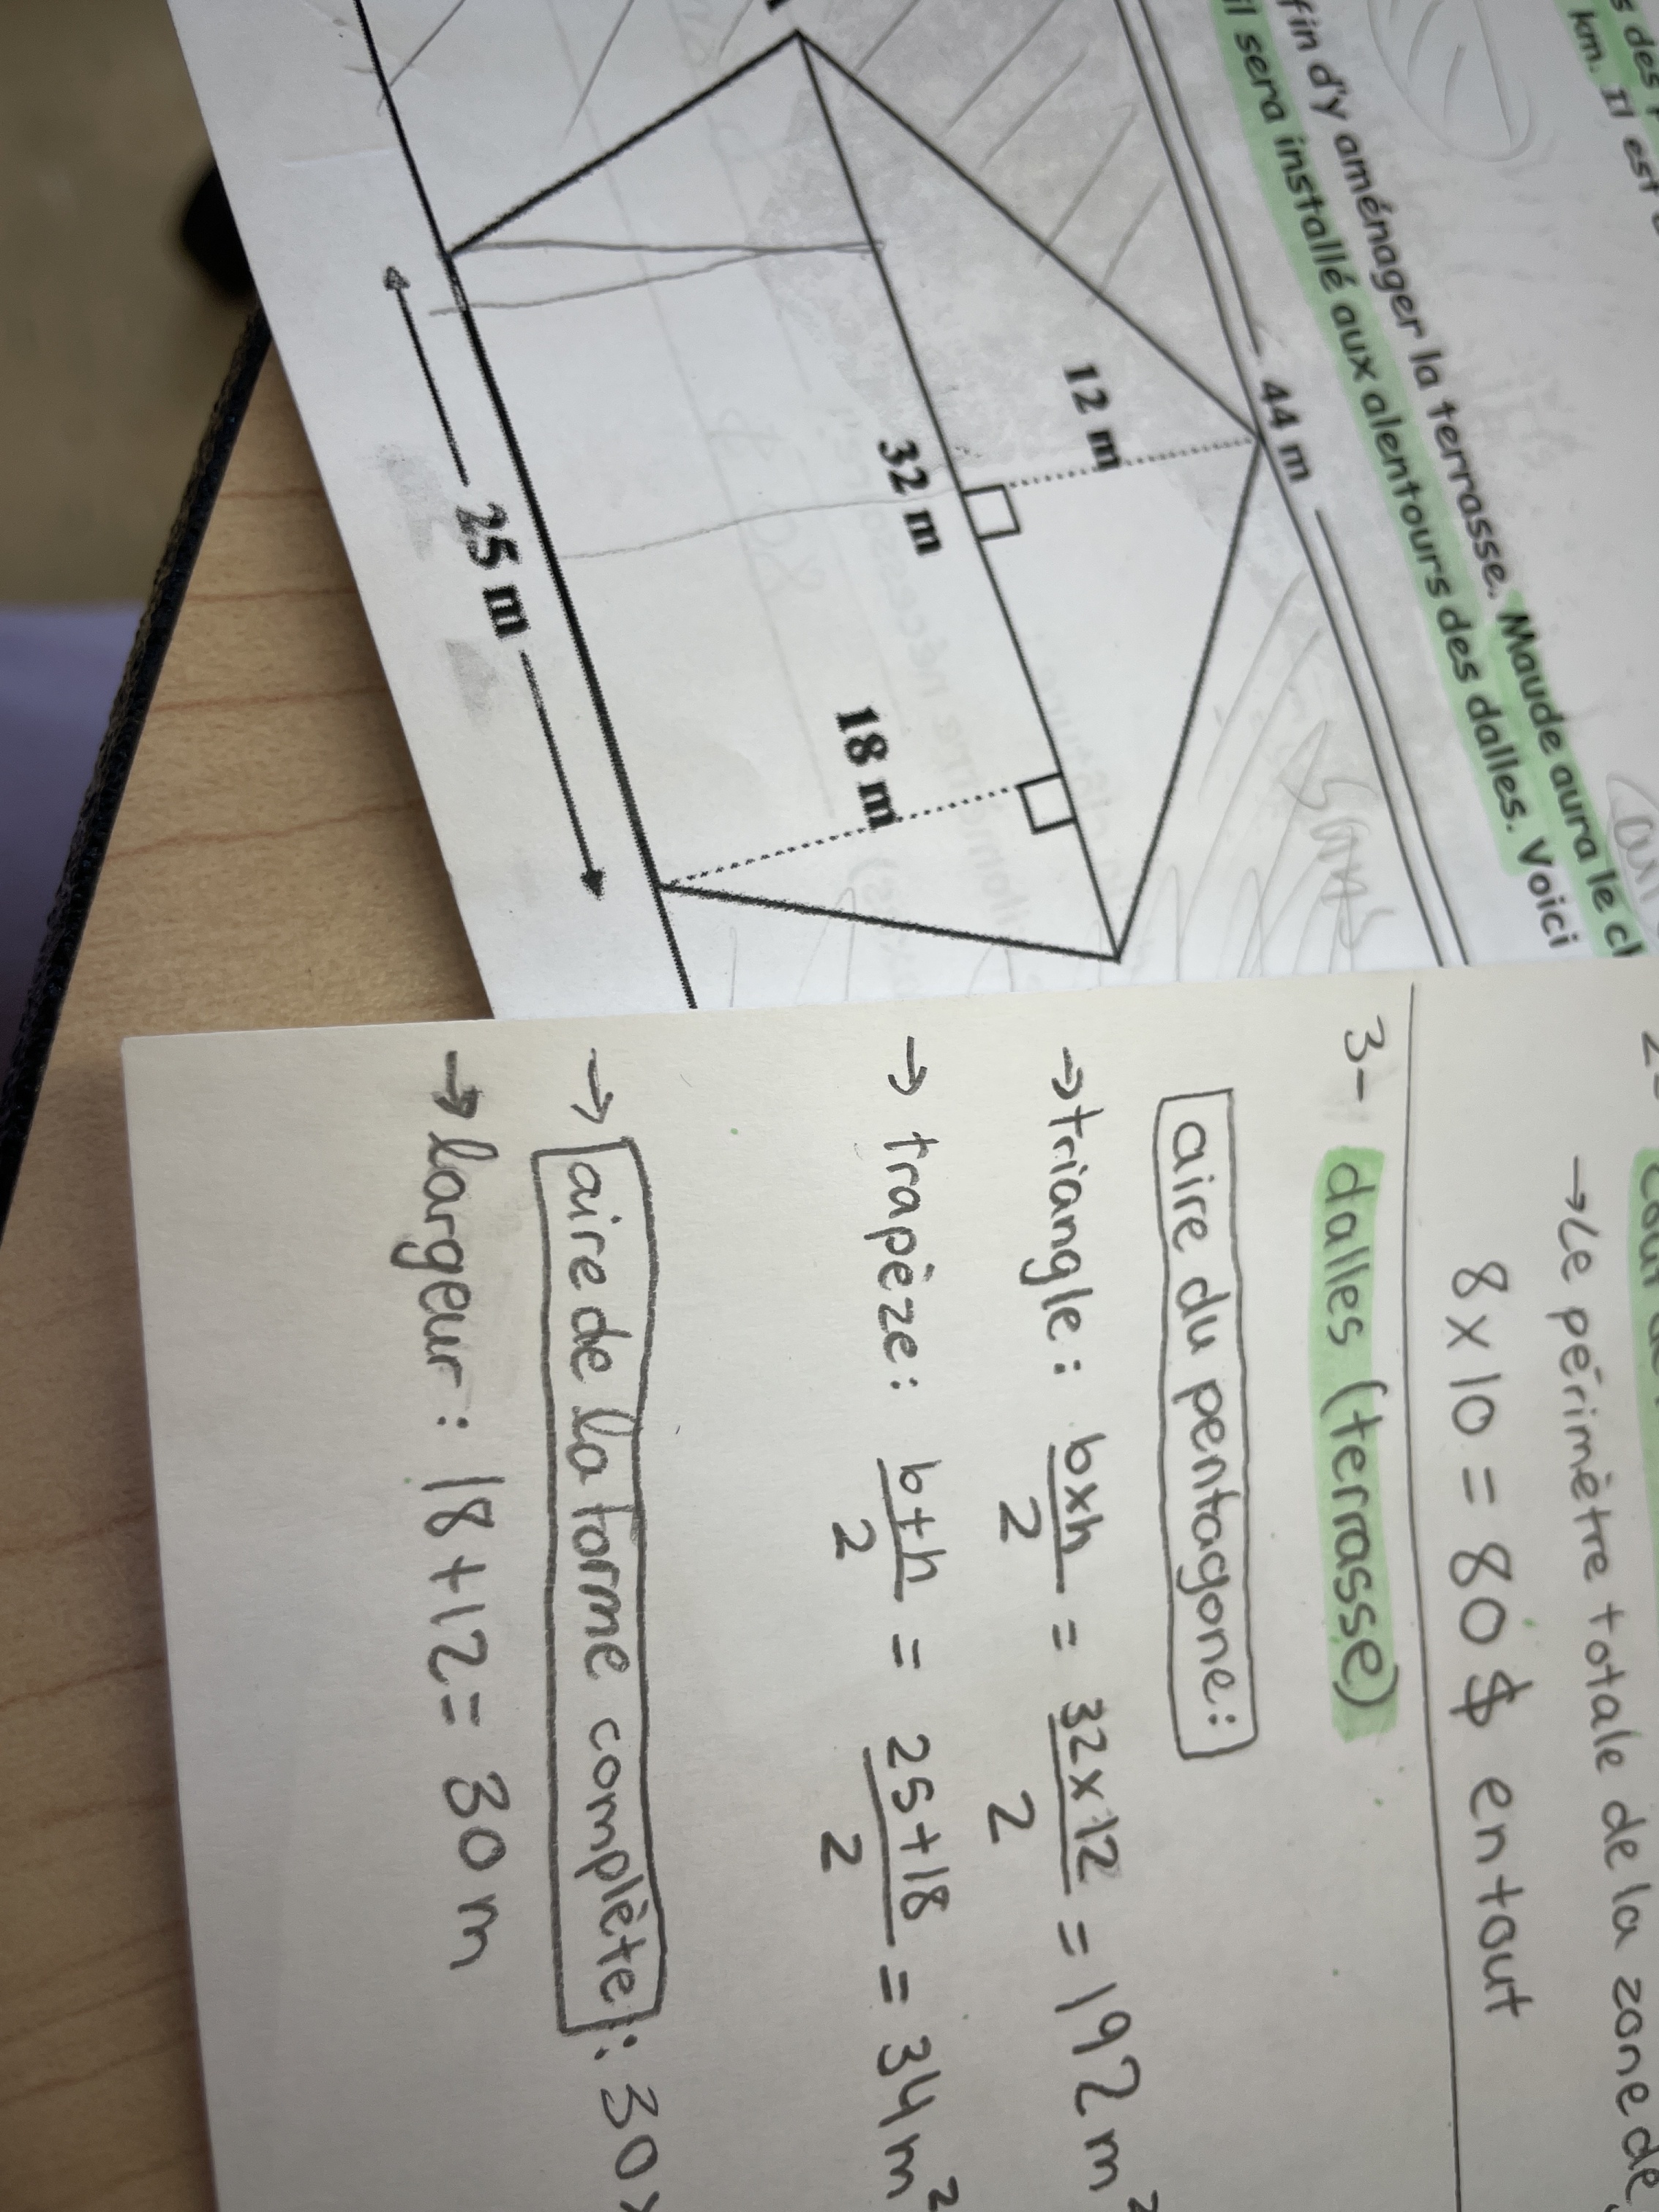 s des
km. Il est
fin d'y aménager la terrasse. Maude aura le
il sera installé aux alentours des dalles. Voici
44 m
12 m
32 m
18 m
25 m
→ Le périmètre totale de la zone de
8 x 10 = 80 $ en tout
3- dalles (terrasse)
aire du pentagone:
→ triangle: bxh/2 = 32x12/2 = 192 m²
→ trapèze: b+h/2 = 25+18/2 = 34 m²
→ aire de la forme complète: 30
→ largeur: 18+12= 30 m